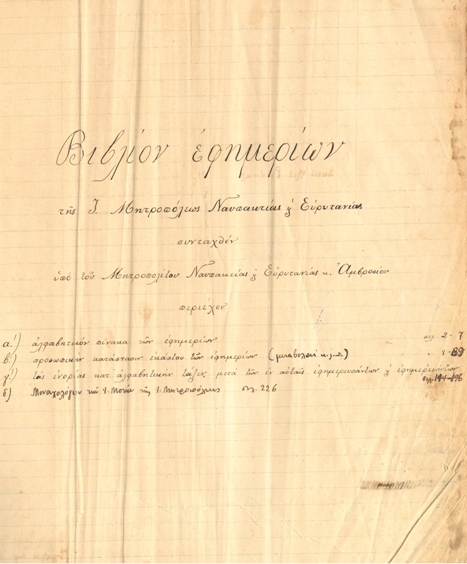 Βιβλίον ἐφημερίων
τῆς Ἰ. Μητροπόλεως Ναυπακτίας & Εὐρυτανίας
συνταχθὲν
ὑπὸ τοῦ Μητροπολίτου Ναυπακτίας & Εὐρυτανίας κ. Ἀμβροσίου
περιέχον
α΄) ἀλφαβητικὸν πίνακα τῶν ἐφημερίων σελ. 2-7
β΄) προσωπικὴν κατάστασιν ἑκάστου τῶν ἐφημερίων (μεταβολαὶ κ.λ.π.)
γ΄) τὰς ἐνορίας κατ' ἀλφαβητικὴν τάξιν μετὰ τῶν ἐν αὐταῖς ἐφημερευσάντων & ἐφημερευόντων
δ) Μοναχολόγιον τῶν Ἱ. Μονῶν τῆς Ἱ. Μητροπόλεως σελ. 226